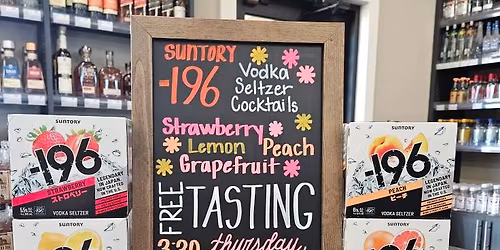 SUNTORY
-196
Vodka
Seltzer
Cocktails
Strawberry
Lemon Peach
Grapefruit
FREE
TASTING
3:30 thursday
SUNTORY
-196
STRAWBERRY
ストロベリー
LEGENDARY
IN JAPAN.
CRAFTED
IN THE U.S.
VODKA SELTZER
SUNTORY
-196
PEACH
ピーチ
LEGENDARY
IN JAPAN.
CRAFTED
IN THE U.S.
VODKA SELTZER
SUNTORY
SUNTORY